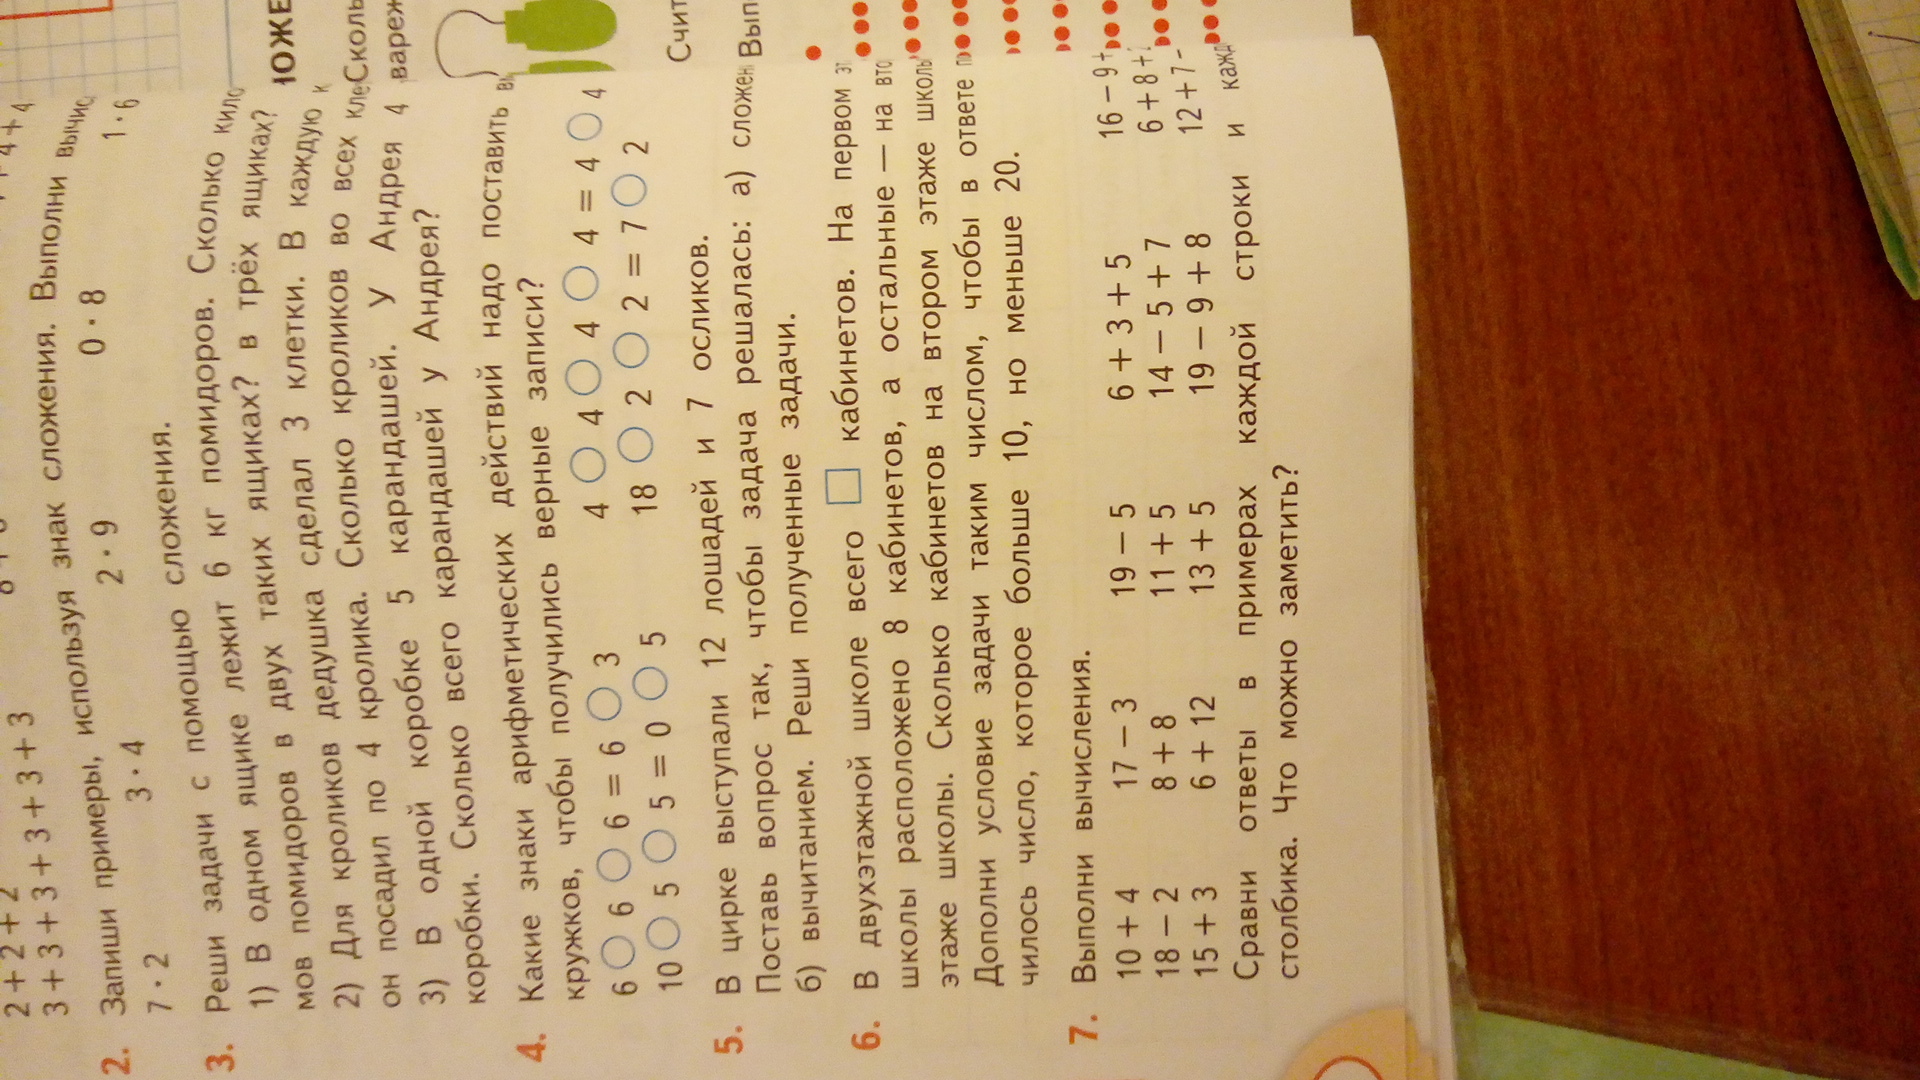 4 + 4
2 + 2 + 2
3 + 3 + 3 + 3 + 3 + 3
2. Запиши примеры, используя знак сложения. Выполни
7 · 2 3 · 4 2 · 9 0 · 8 1 · 6
3. Реши задачи с помощью сложения.
1) В одном ящике лежит 6 кг помидоров. Сколько
мов помидоров в двух таких ящиках? в трёх ящиках?
2) Для кроликов дедушка сделал 3 клетки. В каждую
он посадил по 4 кролика. Сколько кроликов во всех
3) В одной коробке 5 карандашей. У Андрея 4
коробки. Сколько всего карандашей у Андрея?
4. Какие знаки арифметических действий надо поставить
кружков, чтобы получились верные записи?
6 ○ 6 ○ 6 = 6 ○ 3 4 ○ 4 ○ 4 ○ 4 = 4 ○ 4
10 ○ 5 ○ 5 = 0 ○ 5 18 ○ 2 ○ 2 = 7 ○ 2
5. В цирке выступали 12 лошадей и 7 осликов.
Поставь вопрос так, чтобы задача решалась: а)
б) вычитанием. Реши полученные задачи.
6. В двухэтажной школе всего □ кабинетов. На первом
школы расположено 8 кабинетов, а остальные — на
этаже школы. Сколько кабинетов на втором этаже
Дополни условие задачи таким числом, чтобы в ответе
чилось число, которое больше 10, но меньше 20.
7. Выполни вычисления.
10 + 4 17 − 3 19 − 5 6 + 3 + 5 16 − 9 +
18 − 2 8 + 8 11 + 5 14 − 5 + 7 6 + 8 +
15 + 3 6 + 12 13 + 5 19 − 9 + 8 12 + 7 −
Сравни ответы в примерах каждой строки и
столбика. Что можно заметить?